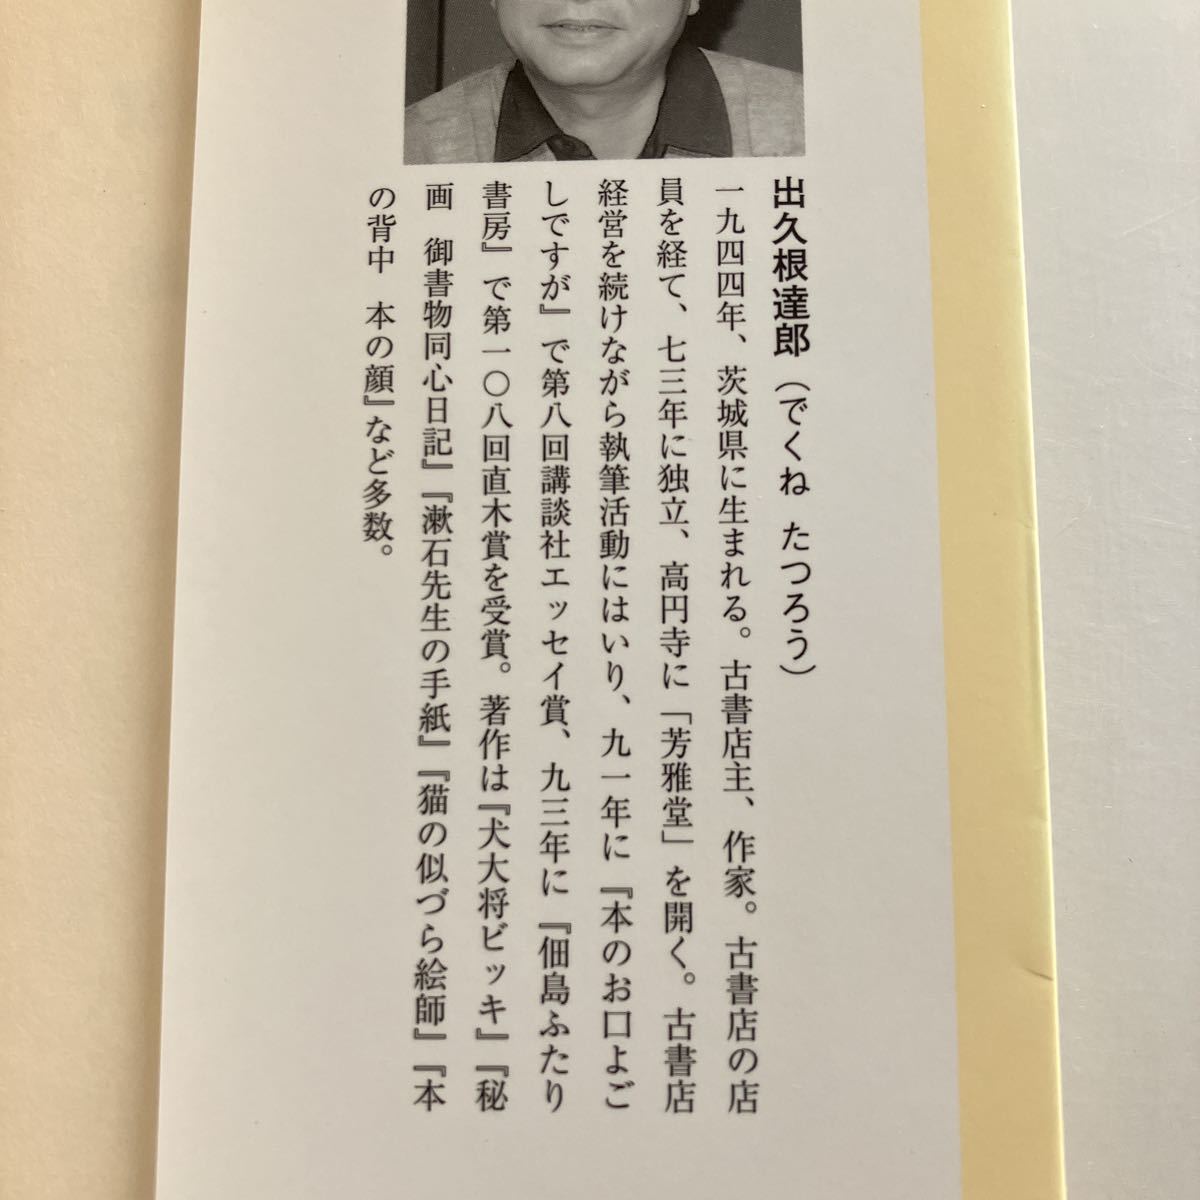 出久根達郎（でくね たつろう）
一九四四年、茨城県に生まれる。古書店主、作家。古書店の店
員を経て、七三年に独立、高円寺に「芳雅堂」を開く。古書店
経営を続けながら執筆活動にはいり、九一年に『本のお口よご
しですが』で第八回講談社エッセイ賞、九三年に『佃島ふたり
書房』で第一〇八回直木賞を受賞。著作は『犬大将ビッキ』『秘
画 御書物同心日記』『漱石先生の手紙』『猫の似づら絵師』『本
の背中 本の顔』など多数。